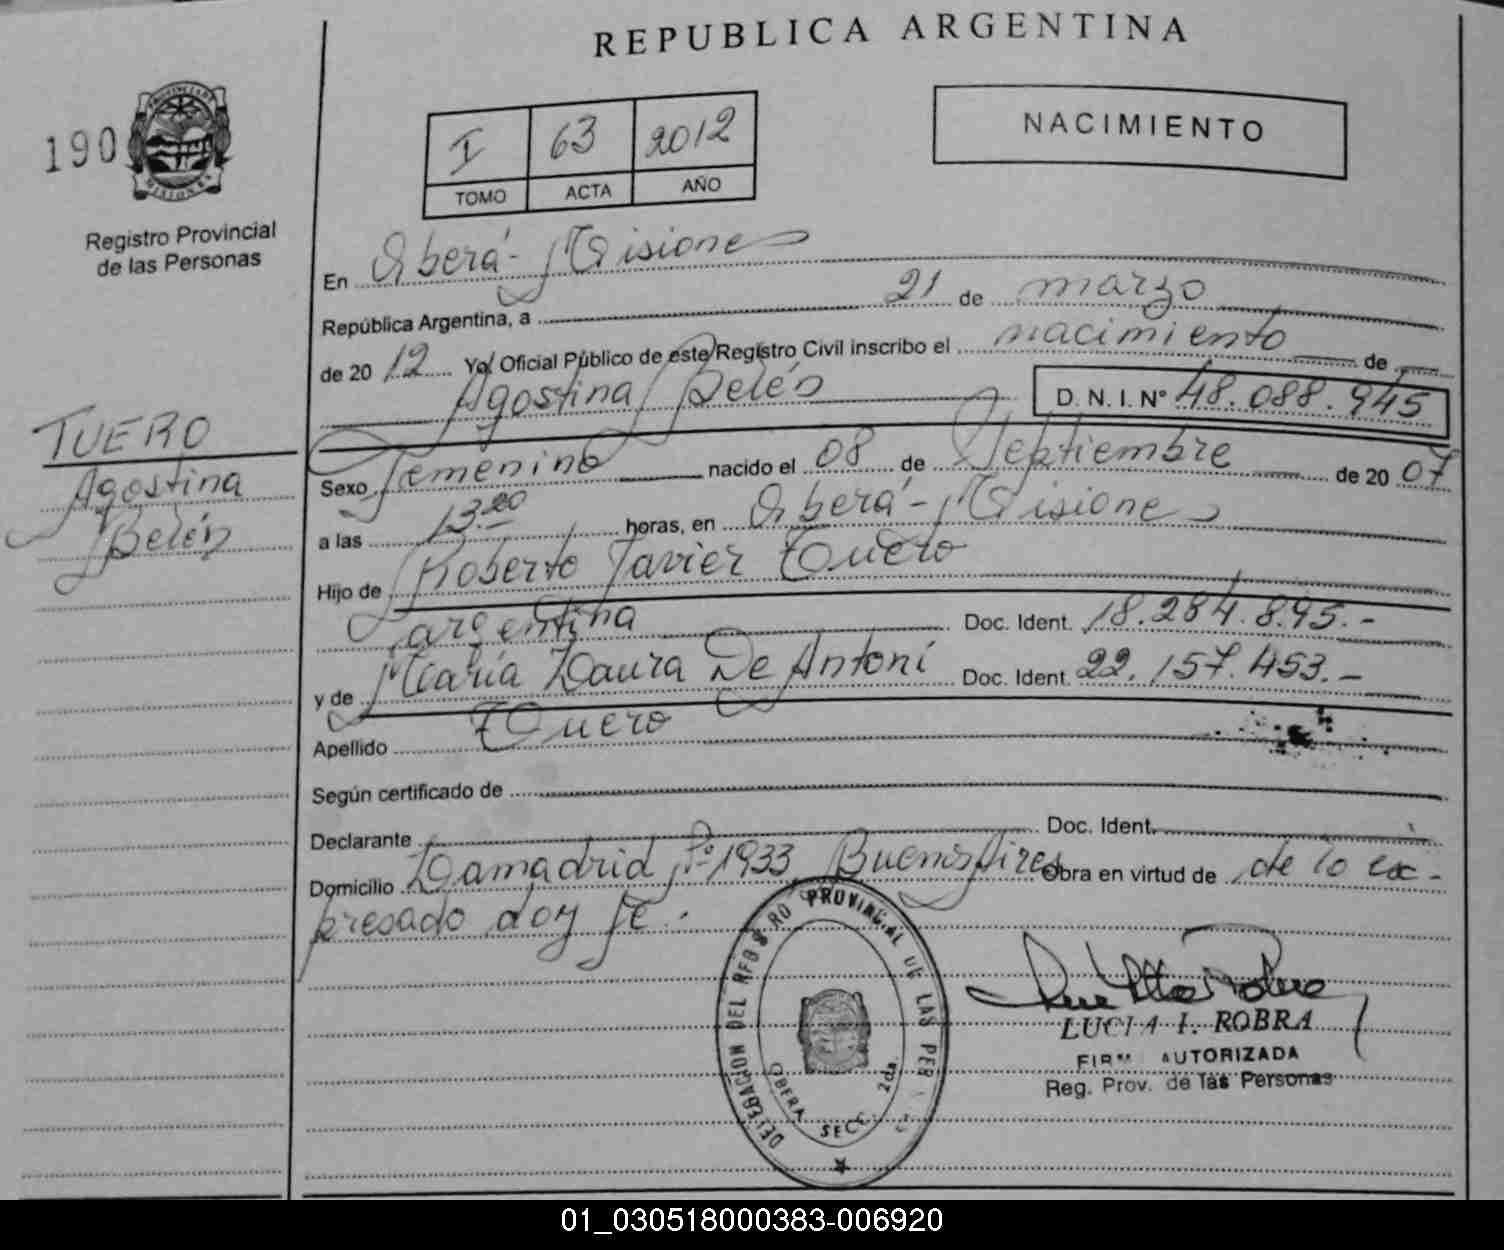 REPUBLICA ARGENTINA
190
PROVINCIA DE MISIONES
Registro Provincial
de las Personas
I 63 2012
TOMO ACTA AÑO
NACIMIENTO
En Oberá - Misiones
República Argentina, a 21 de marzo
de 2012 Yo, Oficial Público de este Registro Civil inscribo el nacimiento de
Agostina Belén D. N. I. Nº 48.088.945
TUERO
Agostina
Belén
Sexo femenino nacido el 08 de Septiembre de 2007
a las 13.20 horas, en Oberá - Misiones
Hijo de Roberto Javier Tuero
argentina Doc. Ident. 18.284.895.-
y de María Laura De Antoni Doc. Ident. 22.157.453.-
Apellido Tuero
Según certificado de
Declarante Doc. Ident.
Domicilio Lamadrid Nº 1933, Buenos Aires Obra en virtud de de lo ex-
presado doy fe.
DELEGACION DEL REGISTRO PROVINCIAL DE LAS PER
OBERA SECC. 2da.
LUCIA I. ROBRA
FIRMA AUTORIZADA
Reg. Prov. de las Personas
01_030518000383-006920